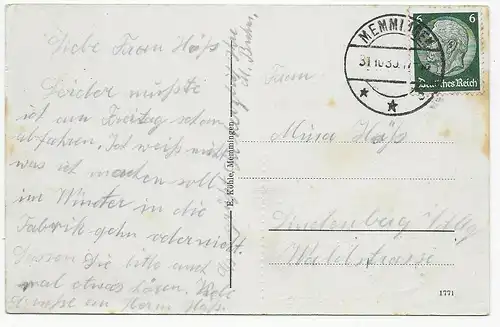 Liebe Frau Häfs
Leider mußte
ich am Freitag schon
abfahren. Ich weiß nicht
was ich machen soll
im Winter in die
Fabrik gehn oder nicht.
Lassen Sie bitte auch
mal etwas hören. Viele
Grüße an Herrn Häfs.
E. Köhle, Memmingen.
MEMMINGEN
31.10.35.
6 6
Deutsches Reich
Frau
Mina Häfs
Lindenberg i/Allg
Waldstrasse
1771